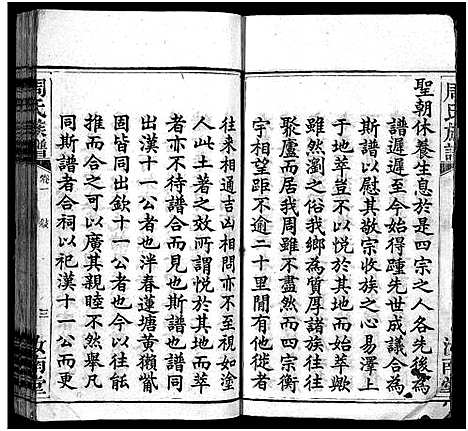 周氏族譜
聖朝休養生息於是四宗之人各先後為
譜遲遲至今始得踵先世成議合為
斯譜以慰其敬宗收族之心易澤上
于地萃豈不以悅於其地而萃歟
雖然瀏之俗我鄉為質厚諸故族
聚廬而居我周雖不盡然而四宗
宇相望距不逾二十里閒有他徙者
往來相通吉凶相問亦不至視如塗
人此土著之效所謂悅於其地而萃
者亦不待譜合而見也斯譜也大率
出漢十一公者也泮春蓮塘黃獺觜
固皆同出欽十一公者也今以往能
推而合之可以廣其親睦不然舉凡
同斯譜者合祠以祀漢十一公而更
周氏族譜
卷
三
汝南堂